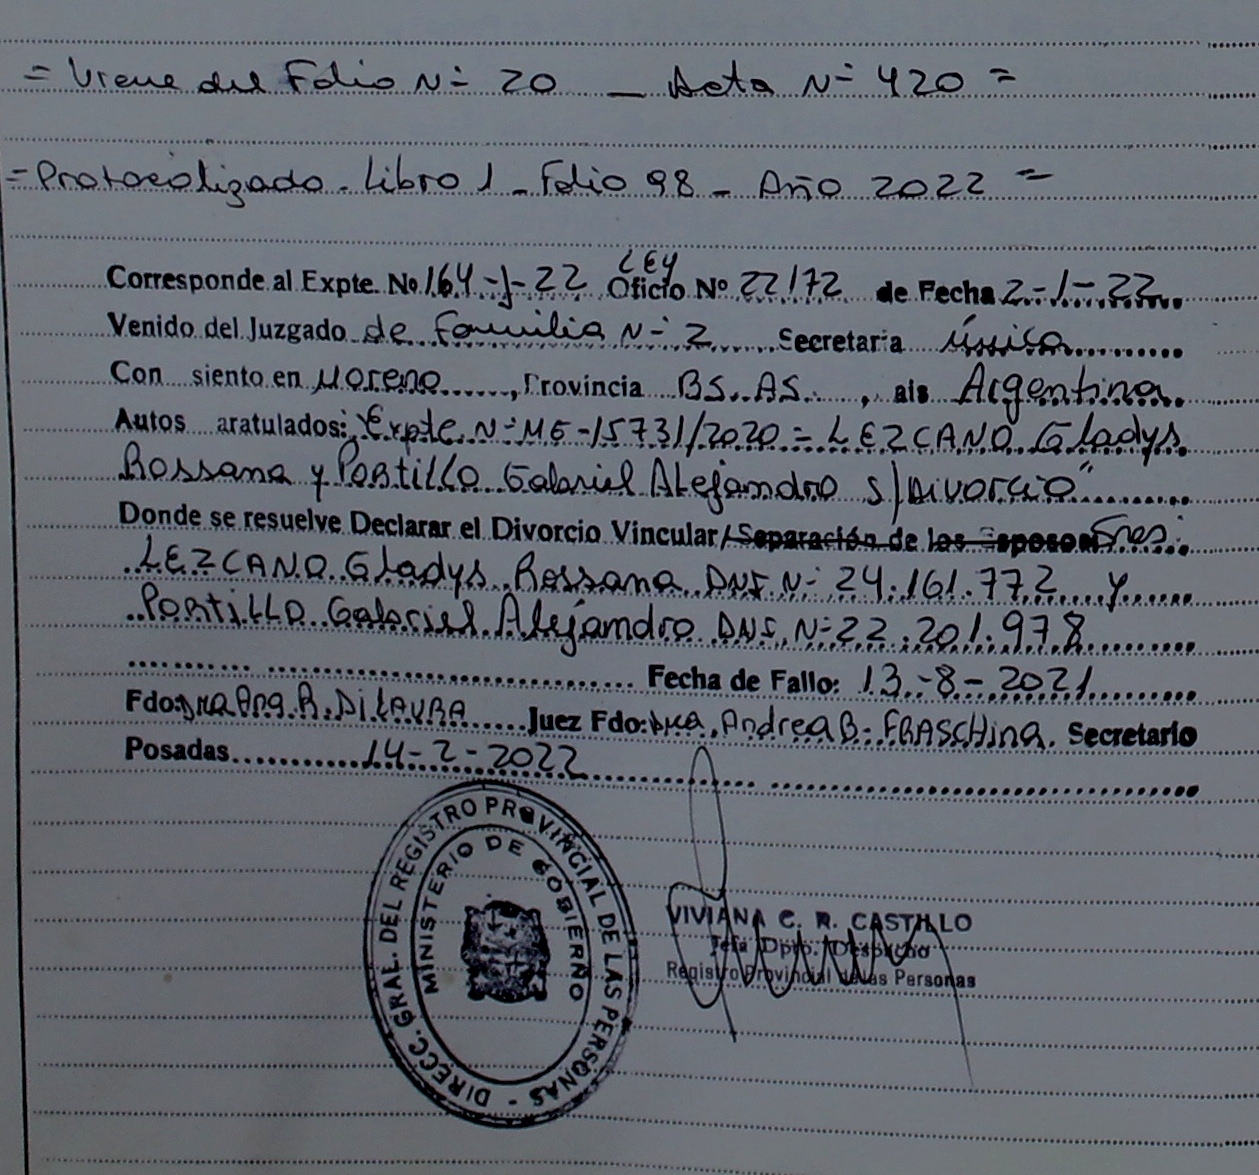 = Viene del Folio N° 20 _ Acta N° 420 =
= Protocolizado - Libro 1 - Folio 98 - Año 2022 =
LEY
Corresponde al Expte. No 164-J-22 Oficio Nº 22172 de Fecha 2-1-22
Venido del Juzgado de Familia N° 2 Secretaria Única
Con siento en Moreno, Provincia BS. AS., ais Argentina
Autos aratulados: "Expte. N° MG-15731/2020 = LEZCANO Gladys
Rossana y PORTILLO Gabriel Alejandro S/Divorcio"
Donde se resuelve Declarar el Divorcio Vincular/Separación de los Esposos Sres:
LEZCANO Gladys Rossana DNI N° 24.161.772 y
PORTILLO Gabriel Alejandro DNI N° 22.201.978
Fecha de Fallo: 13-8-2021
Fdo: DRA Ana R. DI LAURA Juez Fdo: DRA. Andrea B. FRASCHINA. Secretario
Posadas 14-2-2022
DIRECC. GRAL. DEL REGISTRO PROVINCIAL DE LAS PERSONAS -
MINISTERIO DE GOBIERNO
VIVIANA C. R. CASTILLO
Jefa Dpto. Despacho
Registro Provincial de las Personas